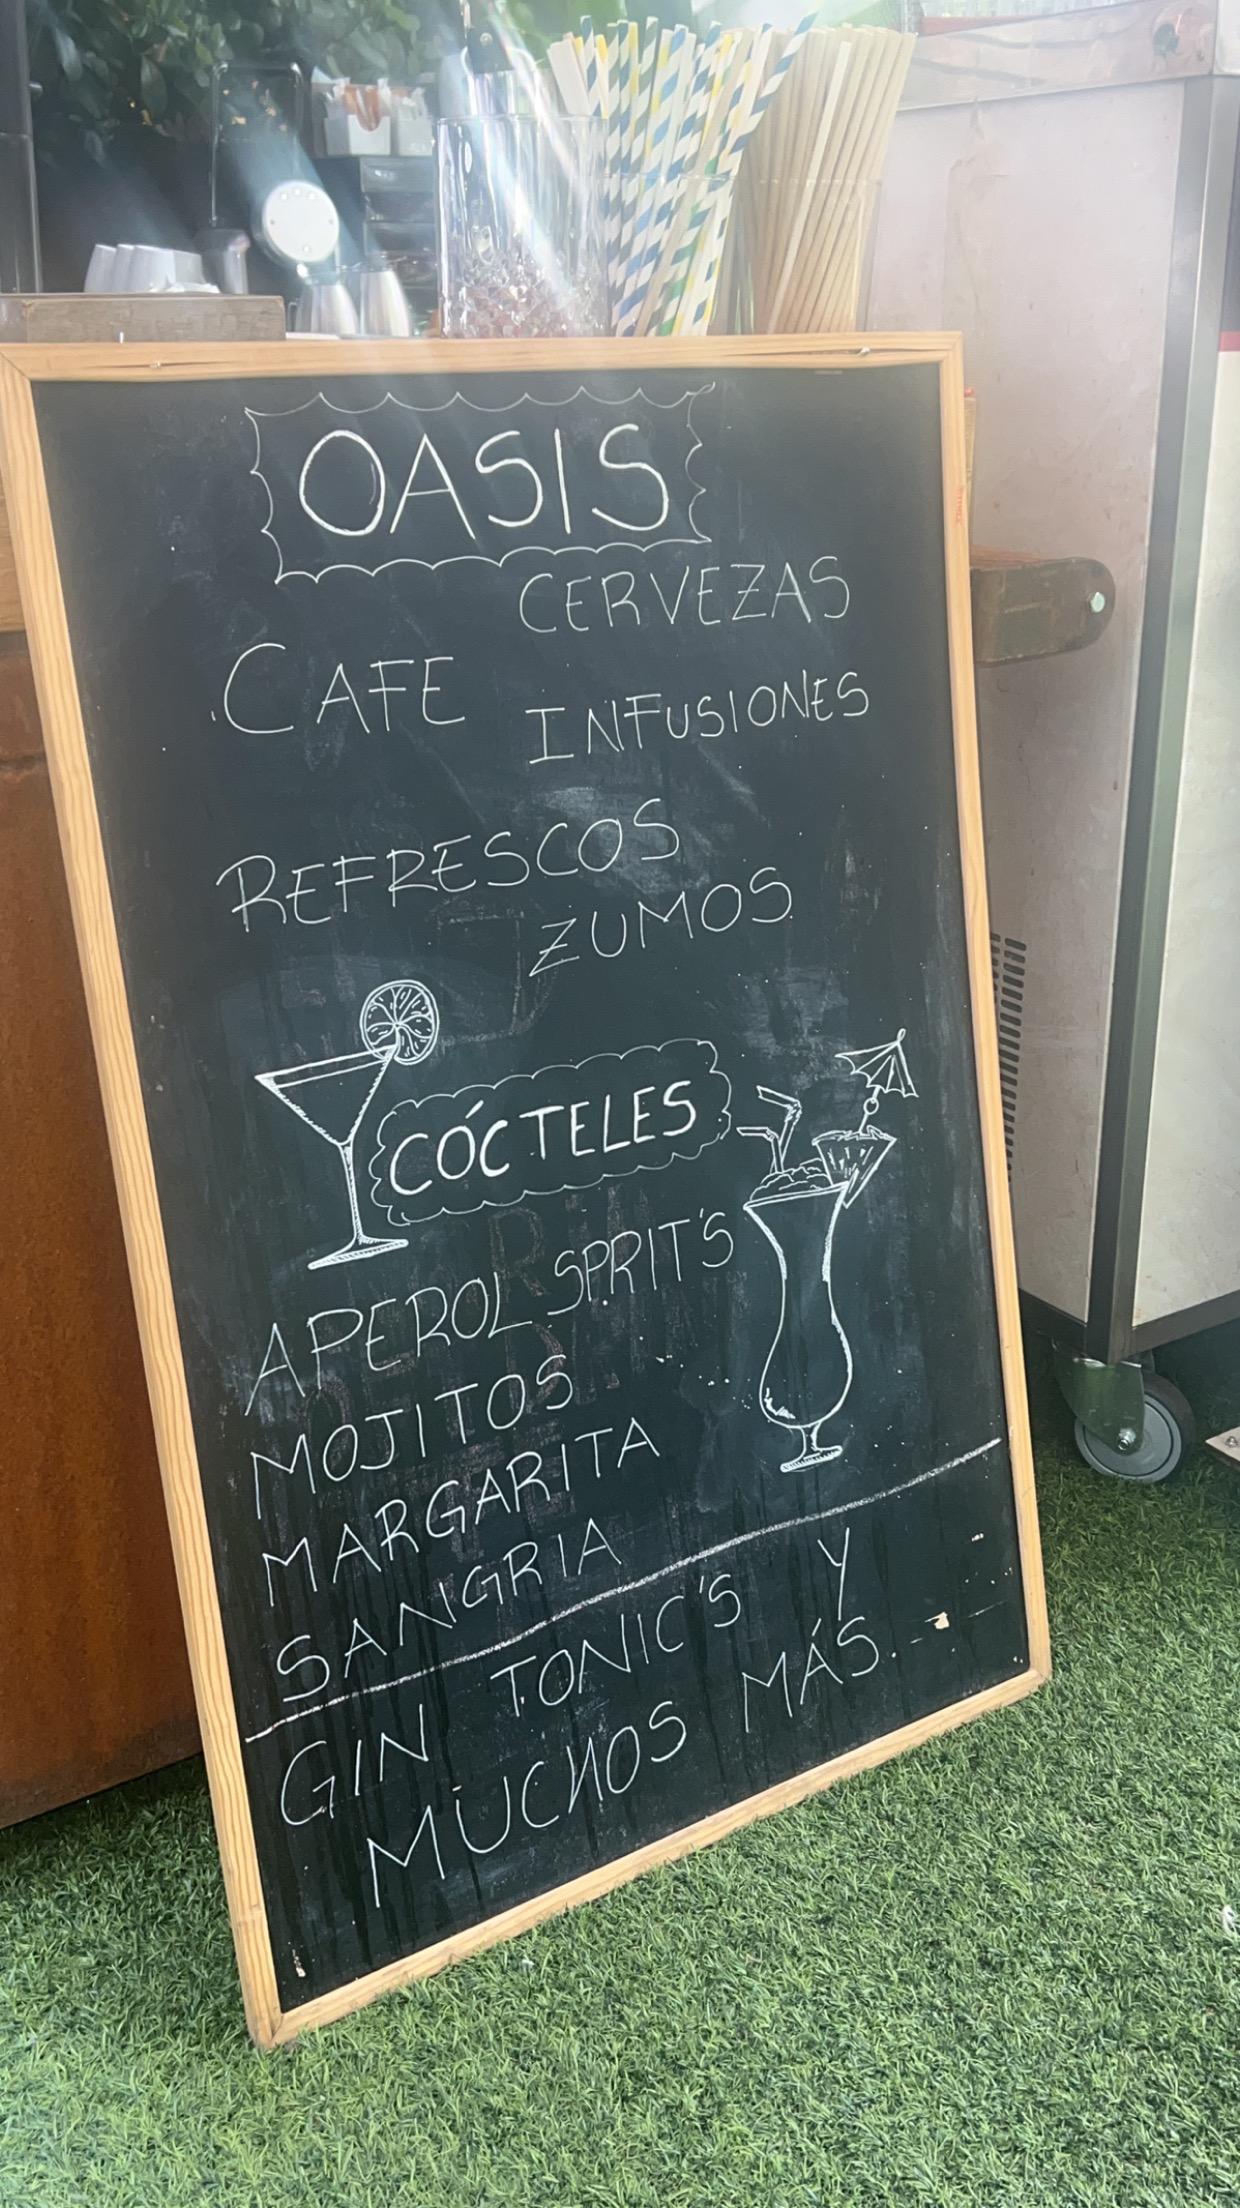 OASIS
CERVEZAS
CAFE
INFUSIONES
REFRESCOS
ZUMOS
CÓCTELES
APEROL SPRIT'S
MOJITOS
MARGARITA
SANGRIA
GIN TONIC'S Y
MUCHOS MÁS.